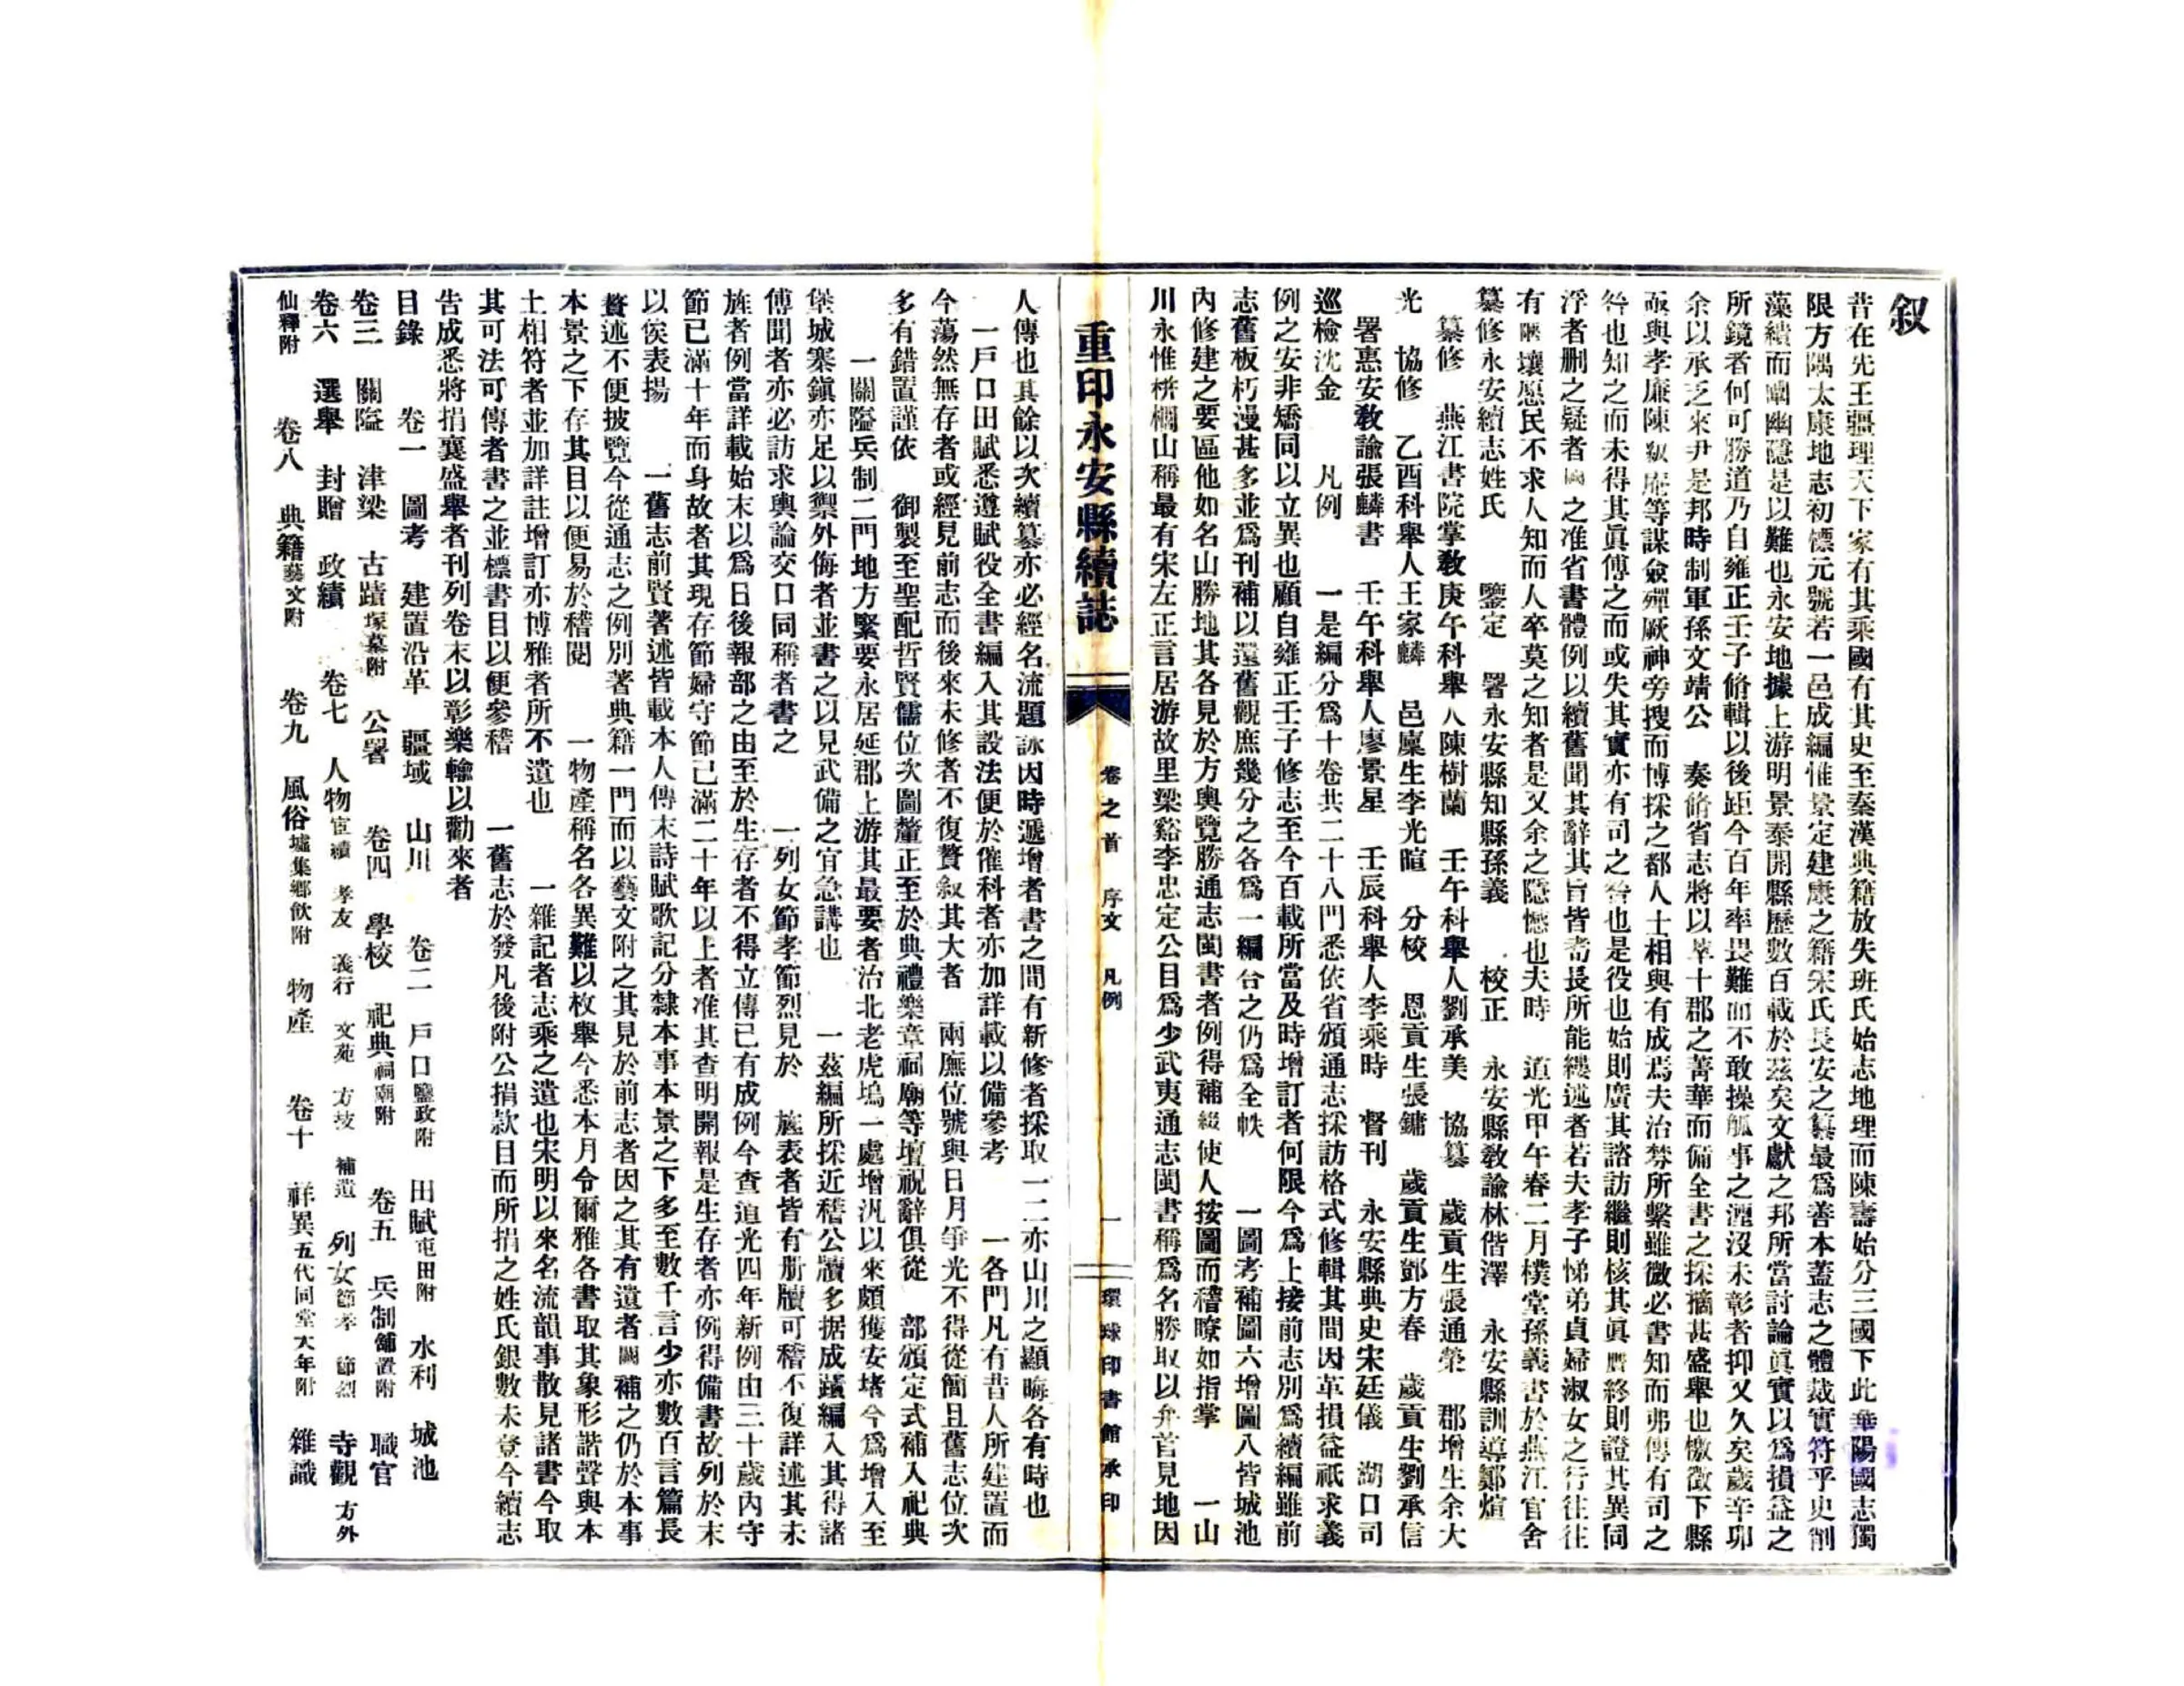 叙
昔在先王疆理天下家有其乘國有其史至秦漢典籍放失班氏始志地理而陳壽始分三國下此華陽國志獨
限方隅太康地志初標元號若一邑成編惟景定建康之籍宋氏長安之纂最爲善本蓋志之體裁實符乎史削
藻繢而闡幽隱是以難也永安地據上游明景泰開縣歷數百載於茲矣文獻之邦所當討論眞實以爲損益之
所鏡者何可勝道乃自雍正壬子脩輯以後距今百年率畏難而不敢操觚事之湮沒未彰者抑又久矣歲辛卯
余以承乏來尹是邦時制軍孫文靖公　奏脩省志將以萃十郡之菁華而備全書之採摘甚盛舉也檄徵下縣
亟與孝廉陳叙庵等謀僉殫厥神旁搜而博採之都人士相與有成焉夫治榜所繫雖微必書知而弗傳有司之
咎也知之而未得其眞傳之而或失其實亦有司之咎也是役也始則廣其諮訪繼則核其眞贋終則證其異同
浮者删之疑者闕之准省書體例以續舊聞其辭其旨皆耆長所能縷述者若夫孝子悌弟貞婦淑女之行往往
有幽壤愿民不求人知而人卒莫之知者是又余之隱憾也夫時　道光甲午春二月樸堂孫義書於燕江官舍
纂修永安續志姓氏　　鑒定　署永安縣知縣孫義　　校正　永安縣教諭林偕澤　永安縣訓導鄭煊
纂修　燕江書院掌教庚午科舉人陳樹蘭　壬午科舉人劉承美　協纂　歲貢生張通榮　郡增生余大
光　協修　乙酉科舉人王家麟　邑廩生李光暄　分校　恩貢生張鏞　歲貢生鄧方春　歲貢生劉承信
署惠安教諭張麟書　壬午科舉人廖景星　壬辰科舉人李乘時　督刊　永安縣典史宋廷儀　湖口司
巡檢沈金　　凡例　　一是編分爲十卷共二十八門悉依省頒通志採訪格式修輯其間因革損益祇求義
例之安非矯同以立異也顧自雍正壬子修志至今百載所當及時增訂者何限今爲上接前志別爲續編雖前
志舊板朽漫甚多並爲刊補以還舊觀庶幾分之各爲一編合之仍爲全帙　　一圖考補圖六增圖八皆城池
內修建之要區他如名山勝地其各見於方輿覽勝通志閩書者例得補綴使人按圖而稽瞭如指掌　　一山
川永惟栟櫚山稱最有宋左正言居游故里梁谿李忠定公目爲少武夷通志閩書稱爲名勝取以弁首見地因
重印永安縣續誌　卷之首　序文　凡例　一　環球印書館承印
人傳也其餘以次續纂亦必經名流題詠因時遞增者書之間有新修者採取一二亦山川之顯晦各有時也
一戶口田賦悉遵賦役全書編入其設法便於催科者亦加詳載以備參考　　一各門凡有昔人所建置而
今蕩然無存者或經見前志而後來未修者不復贅叙其大者　兩廡位號與日月爭光不得從簡且舊志位次
多有錯置謹依　御製至聖配哲賢儒位次圖釐正至於典禮樂章祠廟等壇祝辭俱從　部頒定式補入祀典
一關隘兵制二門地方緊要永居延郡上游其最要者治北老虎塢一處增汛以來頗獲安堵今爲增入至
堡城寨鎭亦足以禦外侮者並書之以見武備之宜急講也　　一茲編所採近稽公牘多据成蹟編入其得諸
傳聞者亦必訪求輿論交口同稱者書之　　一列女節孝節烈見於　旌表者皆有册牘可稽不復詳述其未
旌者例當詳載始末以爲日後報部之由至於生存者不得立傳已有成例今查道光四年新例由三十歲內守
節已滿十年而身故者其現存節婦守節已滿二十年以上者准其查明開報是生存者亦例得備書故列於末
以俟表揚　　一舊志前賢著述皆載本人傳末詩賦歌記分隸本事本景之下多至數千言少亦數百言篇長
贅述不便披覽今從通志之例別著典籍一門而以藝文附之其見於前志者因之其有遺者闕補之仍於本事
本景之下存其目以便易於稽閱　　一物產稱名各異難以枚舉今悉本月令爾雅各書取其象形諧聲與本
土相符者並加詳註增訂亦博雅者所不遺也　　一雜記者志乘之遺也宋明以來名流韻事散見諸書今取
其可法可傳者書之並標書目以便參稽　　一舊志於發凡後附公捐款目而所捐之姓氏銀數未登今續志
告成悉將捐襄盛舉者刊列卷末以彰樂輸以勸來者
目錄　　卷一　圖考　建置沿革　疆域　山川　　卷二　戶口鹽政附　田賦屯田附　水利　城池
卷三　關隘　津梁　古蹟塚墓附　公署　　卷四　學校　祀典祠廟附　　卷五　兵制舖置附　職官
卷六　選舉　封贈　政績　　卷七　人物宦績　孝友　義行　文苑　方技　補遺　列女節孝　節烈　寺觀　方外
仙釋附　　卷八　典籍藝文附　　卷九　風俗墟集鄉飲附　物產　　卷十　祥異五代同堂大年附　雜識